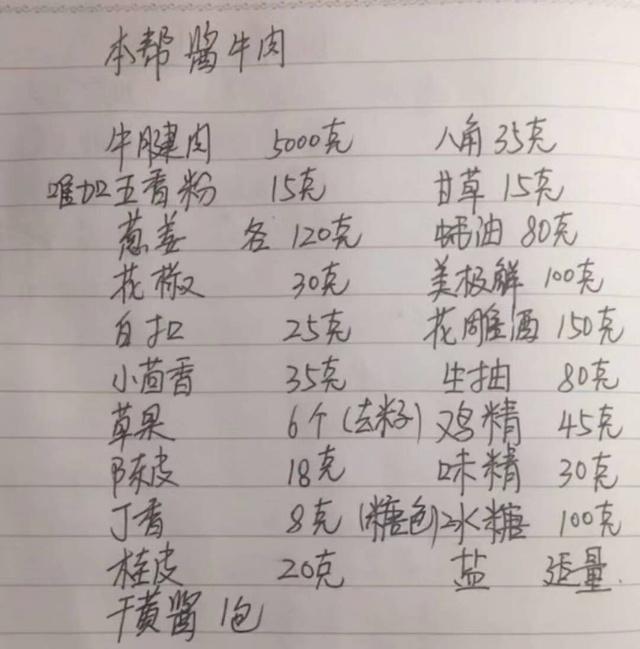 本帮酱牛肉
牛腱肉 5000克 八角 35克
味加五香粉 15克 甘草 15克
葱姜 各 120克 蚝油 80克
花椒 30克 美极鲜 100克
白扣 25克 花雕酒 150克
小茴香 35克 生抽 80克
草果 6个(去籽) 鸡精 45克
陈皮 18克 味精 30克
丁香 8克 (糖色)冰糖 100克
桂皮 20克 盐 适量.
干黄酱 1包